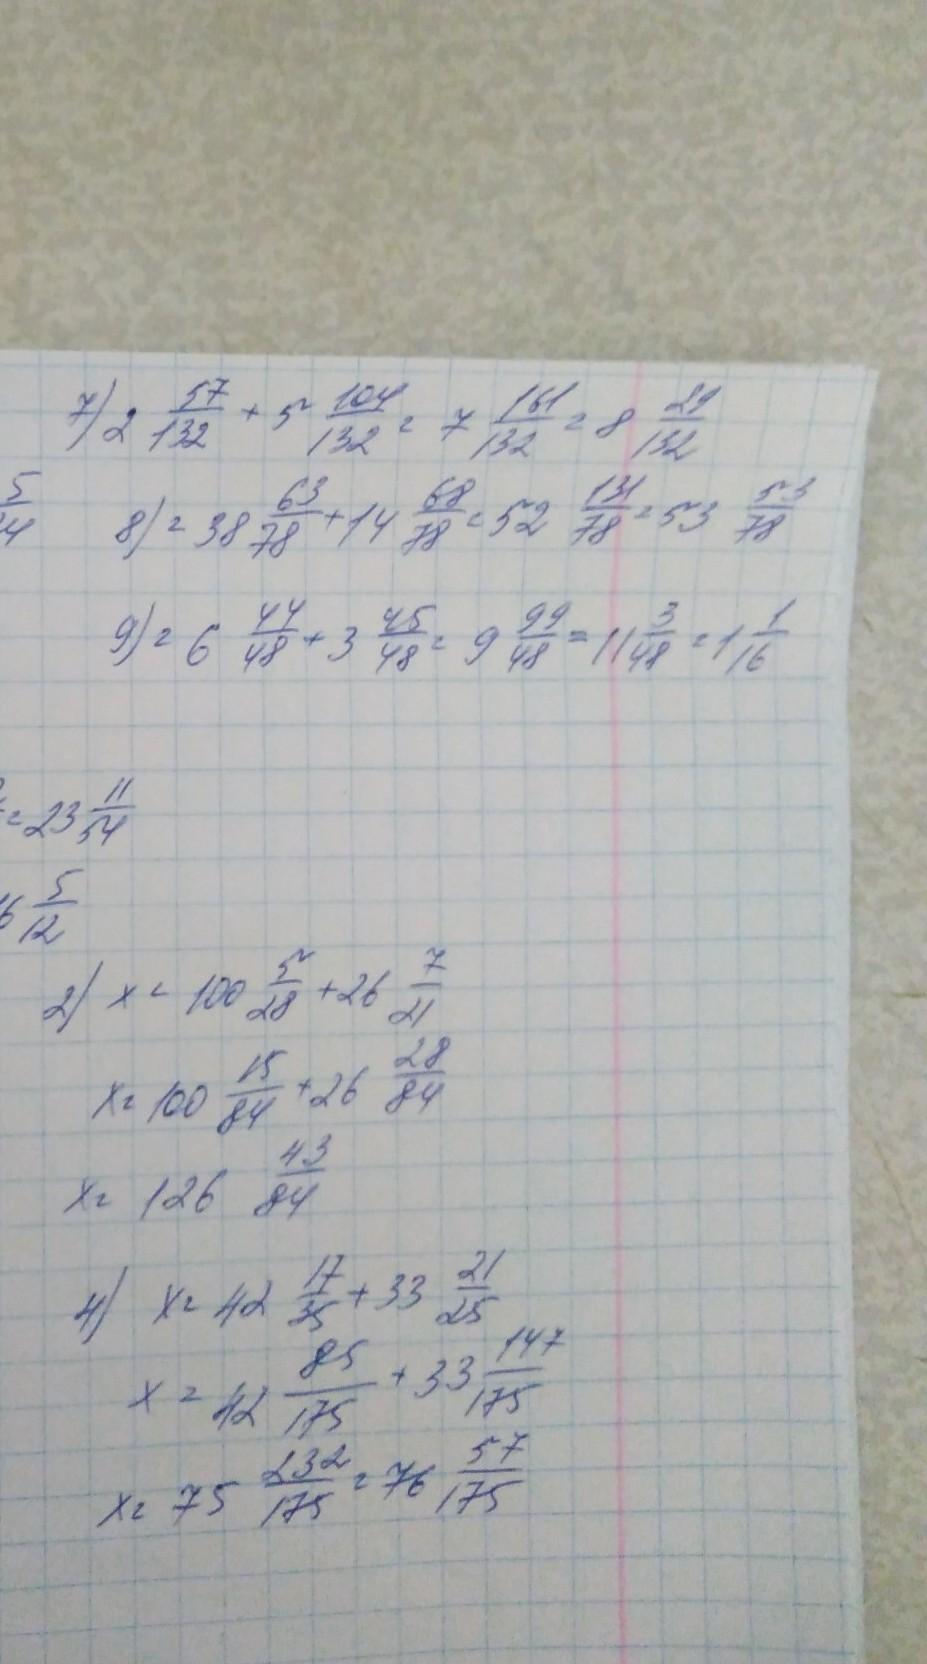 7) 2 57/132 + 5 104/132 = 7 161/132 = 8 29/132
5/24 8) = 38 63/78 + 14 68/78 = 52 131/78 = 53 53/78
9) = 6 44/48 + 3 45/48 = 9 99/48 = 11 3/48 = 1 1/16
= 23 11/54
6 5/12
2) x = 100 5/28 + 26 7/21
x = 100 15/84 + 26 28/84
x = 126 43/84
4) x = 42 17/35 + 33 21/25
x = 42 85/175 + 33 147/175
x = 75 232/175 = 76 57/175